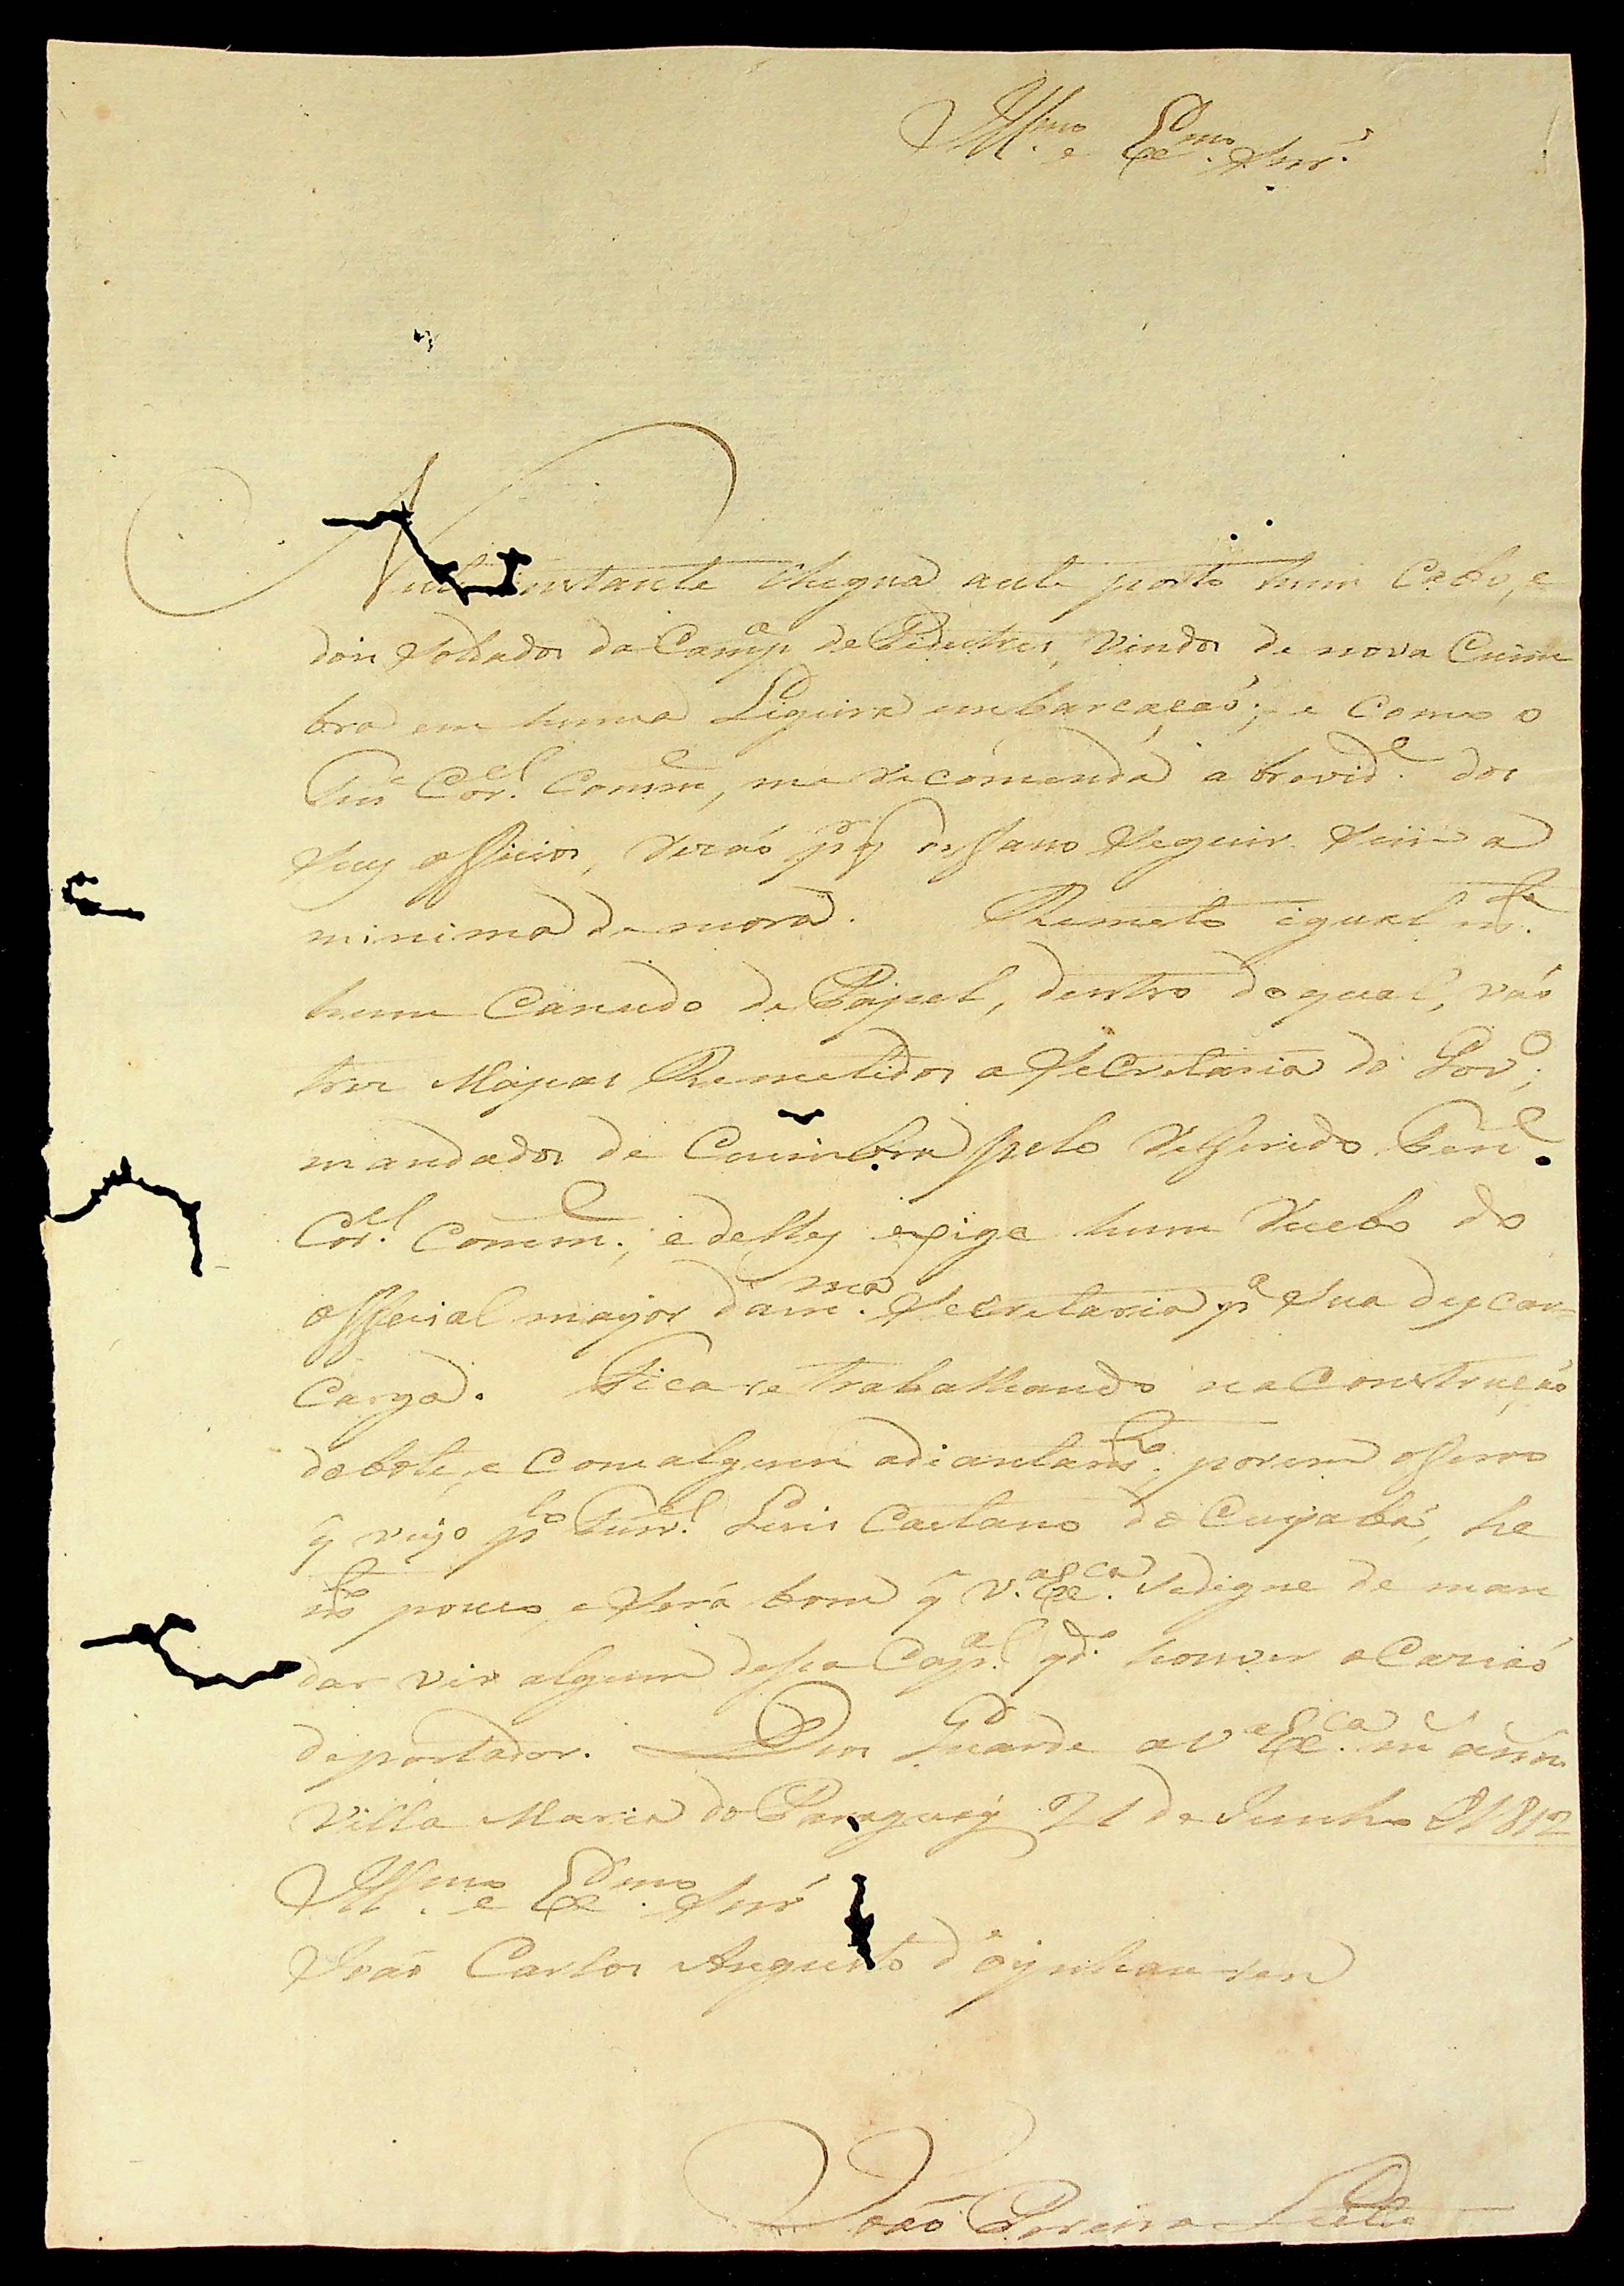 Ill.mo e Ex.mo Snr.
Neste instante chegua aeste porto hum Cabo, e
dois Soldados da Comp.a de Pedestres, vindos de nova Coim
bra em huma Ligeira embarcaçaõ; e Como o
Ten.e Cor.el Comm.e, me recomenda a brevid.e dos
seus officios, p.a q possaõ seguir sem a
minima demora. Remeto igual m.te
hum Canudo de Papel, dentro do qual, vaõ
tres Mapas Remetidos a Secretaria do Gov.o;
mandados de Coimbra pelo refferido Ten.e
Cor.el Comm.e; e delles exige hum recebo do
official mayor dam.ma Secretaria p.a sua descar-
Carga. Fica se trabalhando na Construçaõ
do bote, e Com algum adiantam.to; porem o ferro
q veyo p.lo Furr.el Luis Caetano do Cuyabá, he
m.to pouco, e será bom q V.a Ex.ca sedigne de man
dar vir algum dessa Cap.al q.do houver ocaziaõ
deportador. Deos Guarde a V.a Ex.ca m.s ann.s
Villa Maria do Paraguay 21 de Junho d'1812
Ill.mo e Ex.mo Snr
Joaõ Carlos Augusto d'Oynhausen
Joaõ Pereira Leite